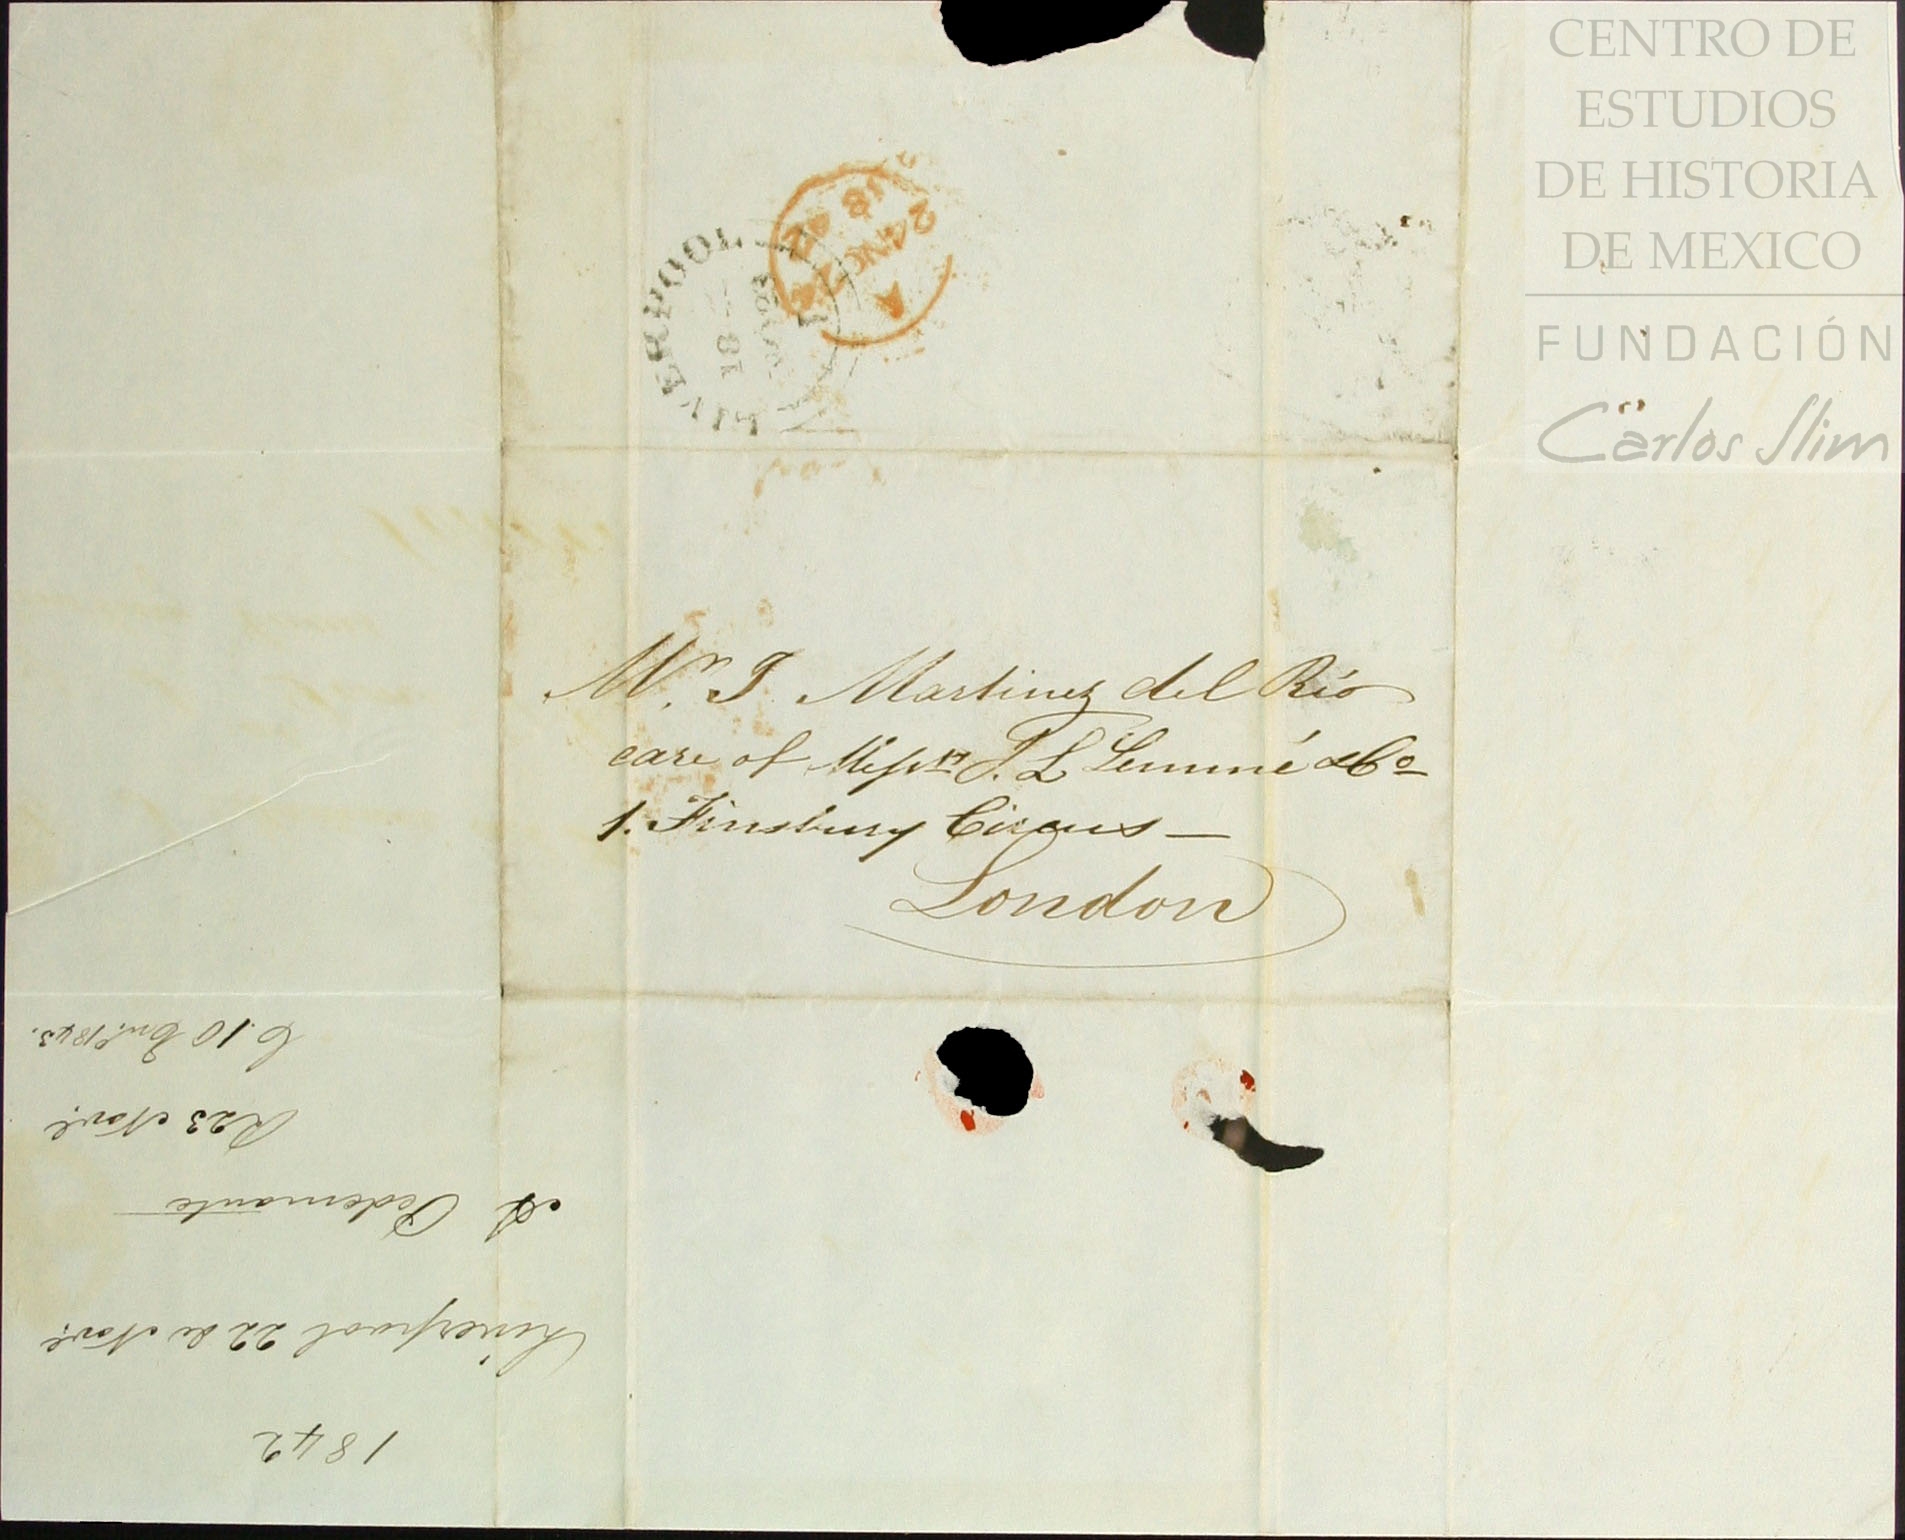 CENTRO DE
ESTUDIOS
DE HISTORIA
DE MEXICO
FUNDACIÓN
Carlos Slim
LIVERPOOL
A
24 NO 24
1842
Mr. J Martinez del Rio
care of Messrs. F. L Lemmé & Co
1. Finsbury Circus —
London
1842
Liverpool 22 de Nove.
A Pedemonte
R 23 Nove.
C. 10 En.o 1843.